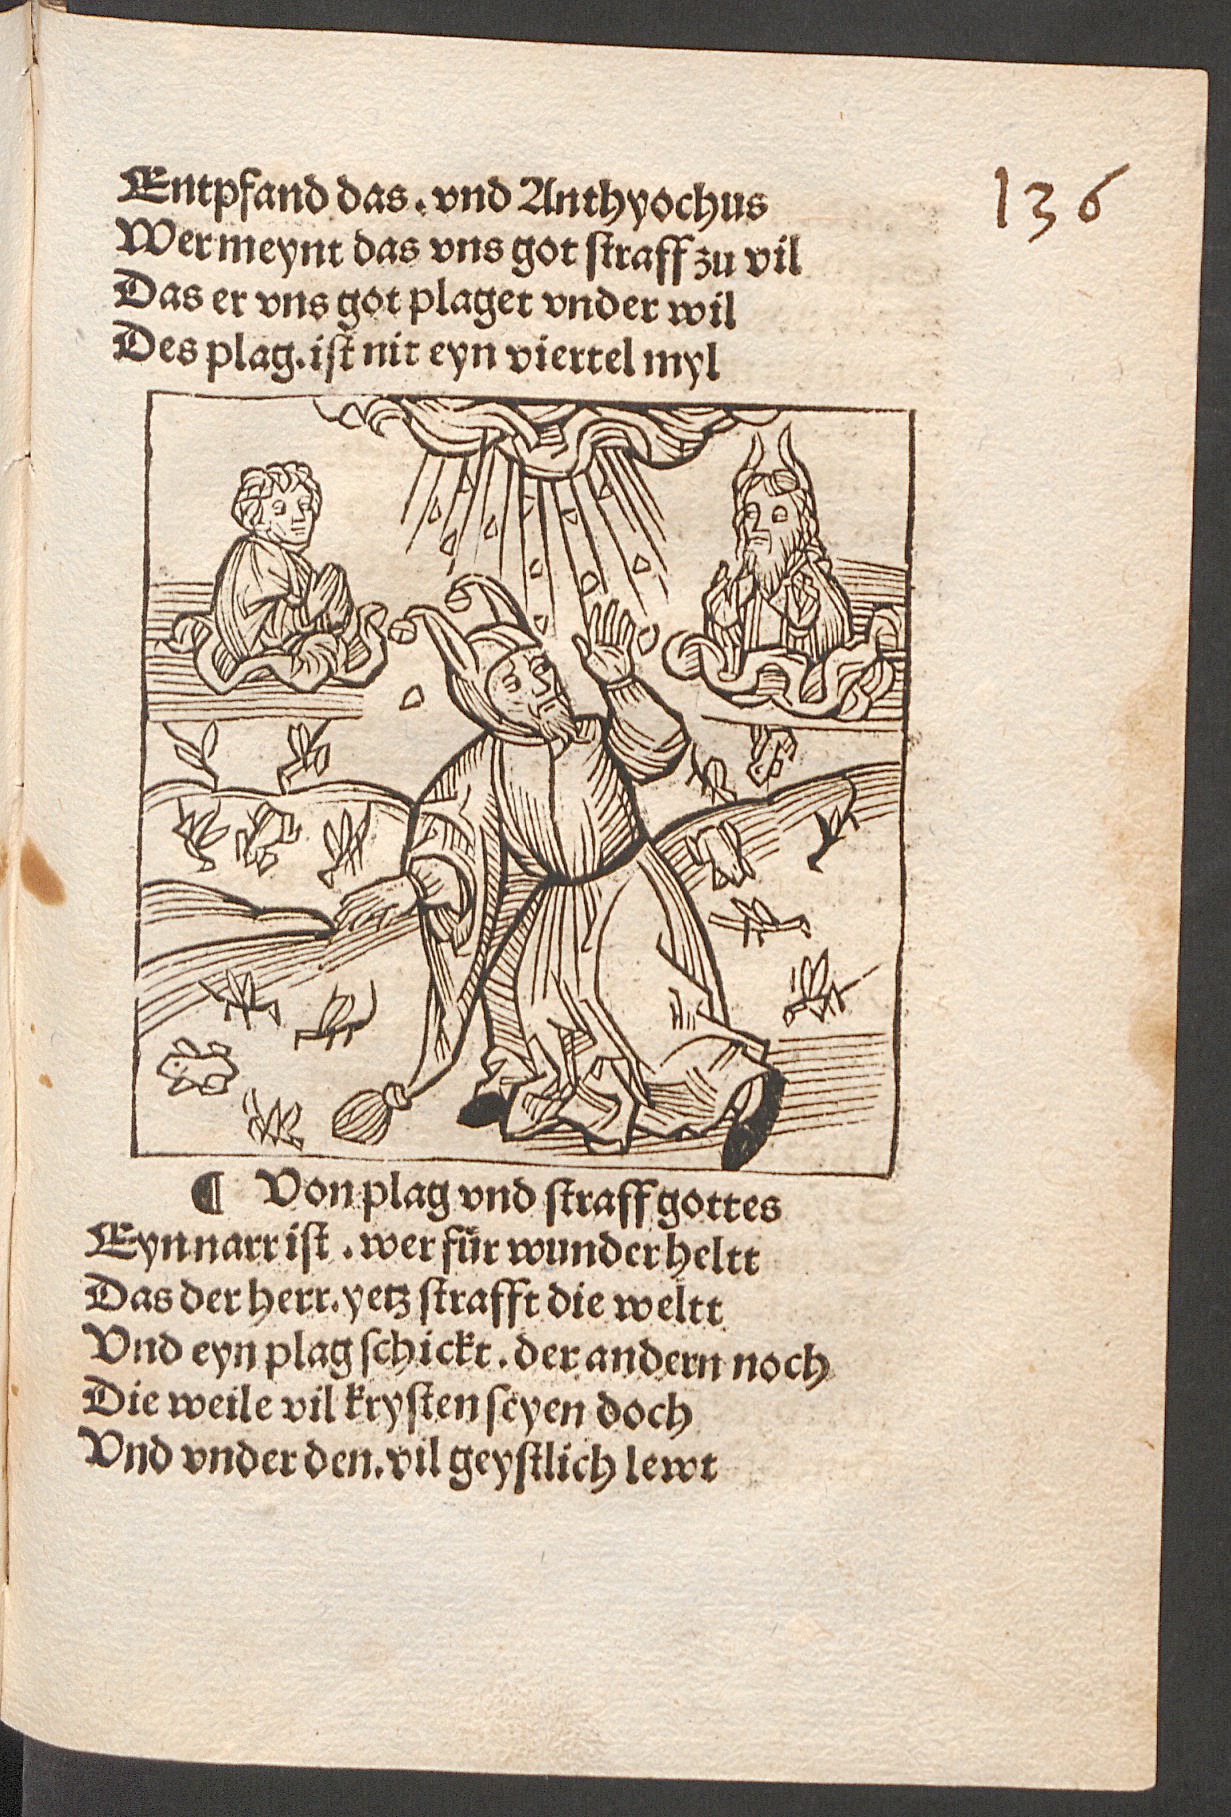 Entpfand das. vnd Anthyochus
136
Wer meynt das vns got ſtraff zu vil
Das er vns got plaget vnder wil
Des plag. iſt nit eyn viertel myl
¶ Von plag vnd ſtraff gottes
Eyn narr iſt. wer für wunder heltt
Das der herr. yetz ſtrafft die weltt
Vnd eyn plag ſchickt. der andern noch
Die weile vil kryſten ſeyen doch
Vnd vnder den. vil geyſtlich lewt